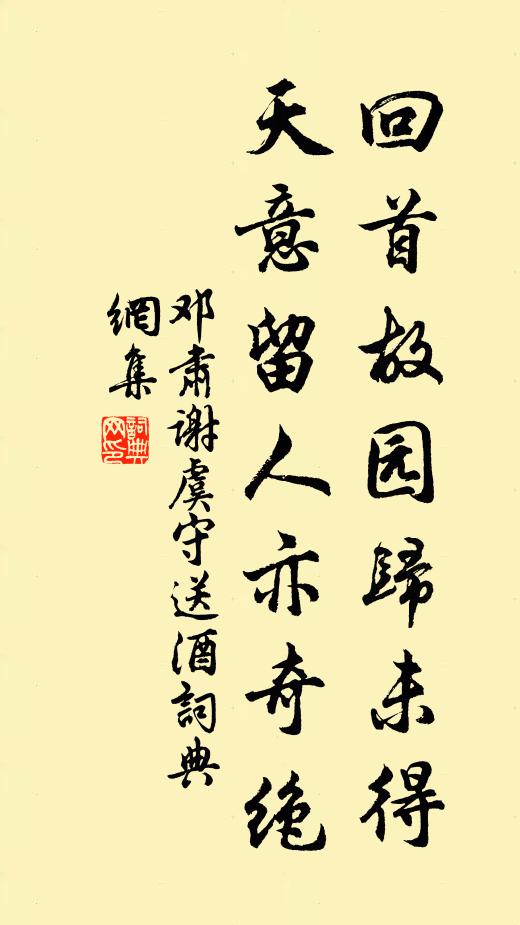 回首故园歸未得
天意留人亦奇绝
邓肃谢虞守送酒詞典
網集
詞典
网印